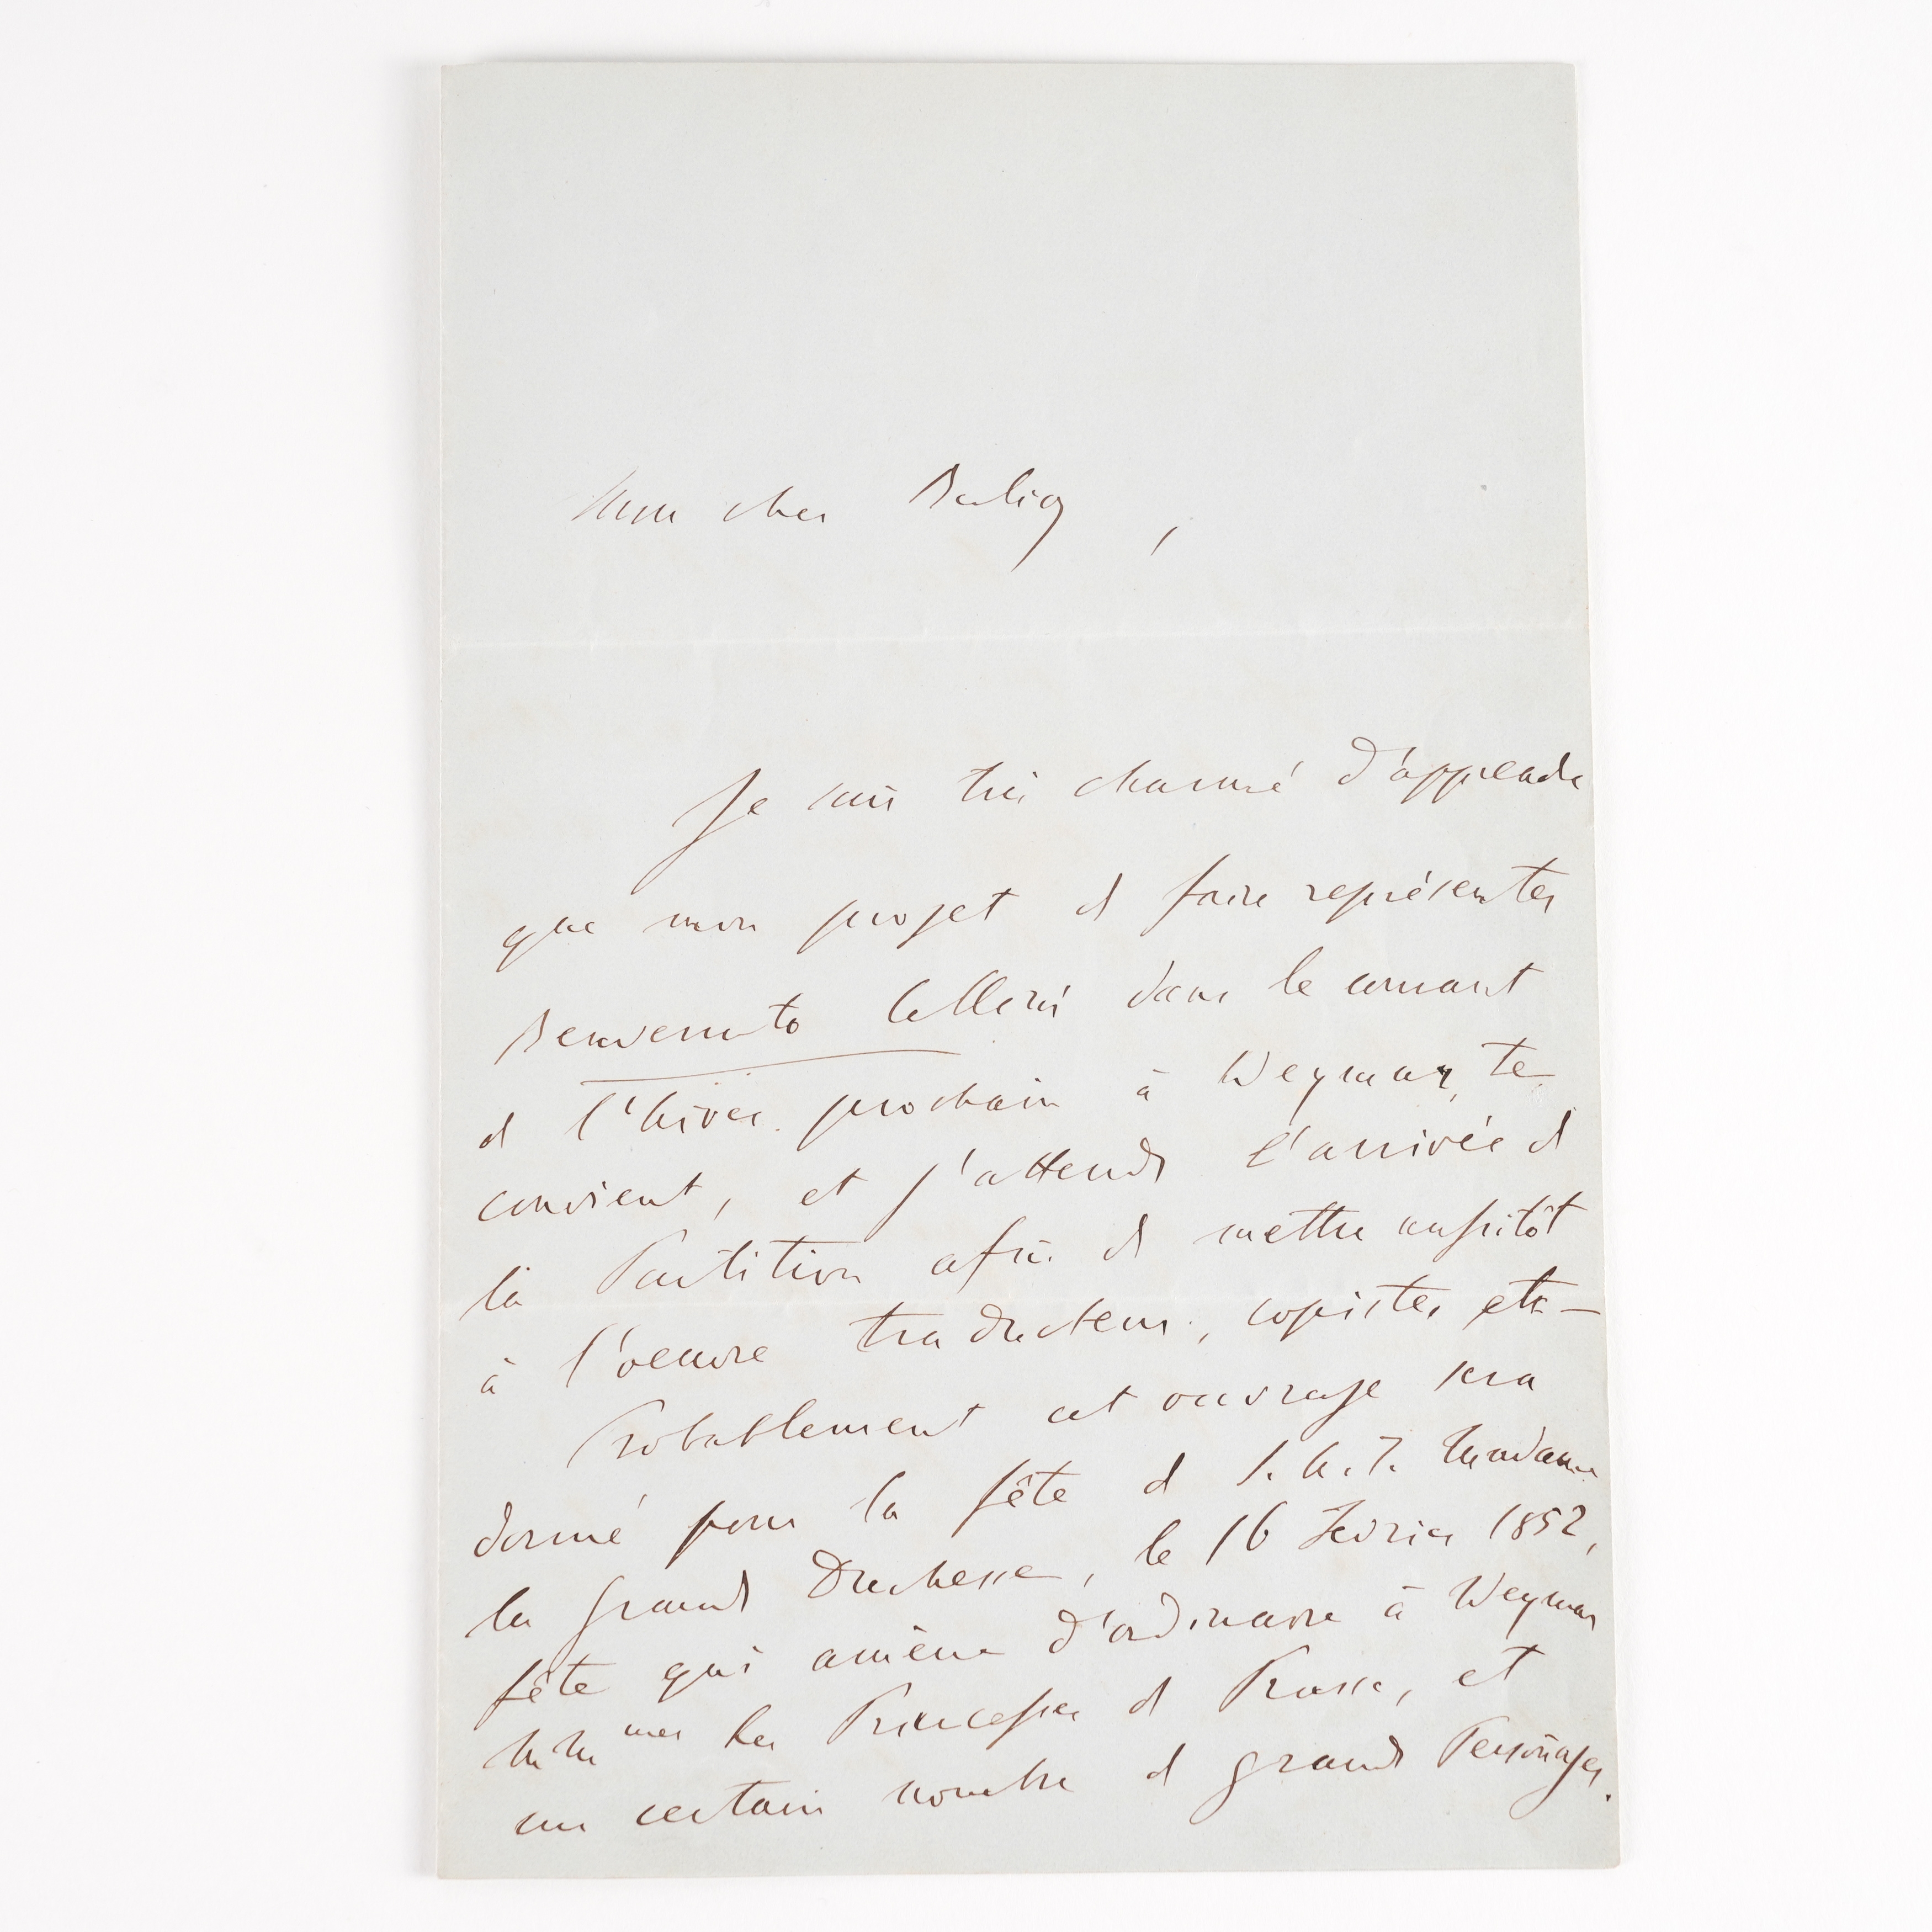 Mon cher Berlioz,
Je suis très charmé d'apprendre
que mon projet de faire représenter
Benvenuto Cellini dans le courant
de l'hiver prochain à Weymar, te
convient, et j'attends l'arrivée de
la Partition afin de mettre aussitôt
à l'oeuvre traducteur, copistes etc —
Probablement cet ouvrage sera
donné pour la fête de S.A.I. Madame
la Grande Duchesse, le 16 Fevrier 1852,
fête qui amène d'ordinaire à Weymar
MM mes les Princesses de Prusse, et
un certain nombre de grands Personages.